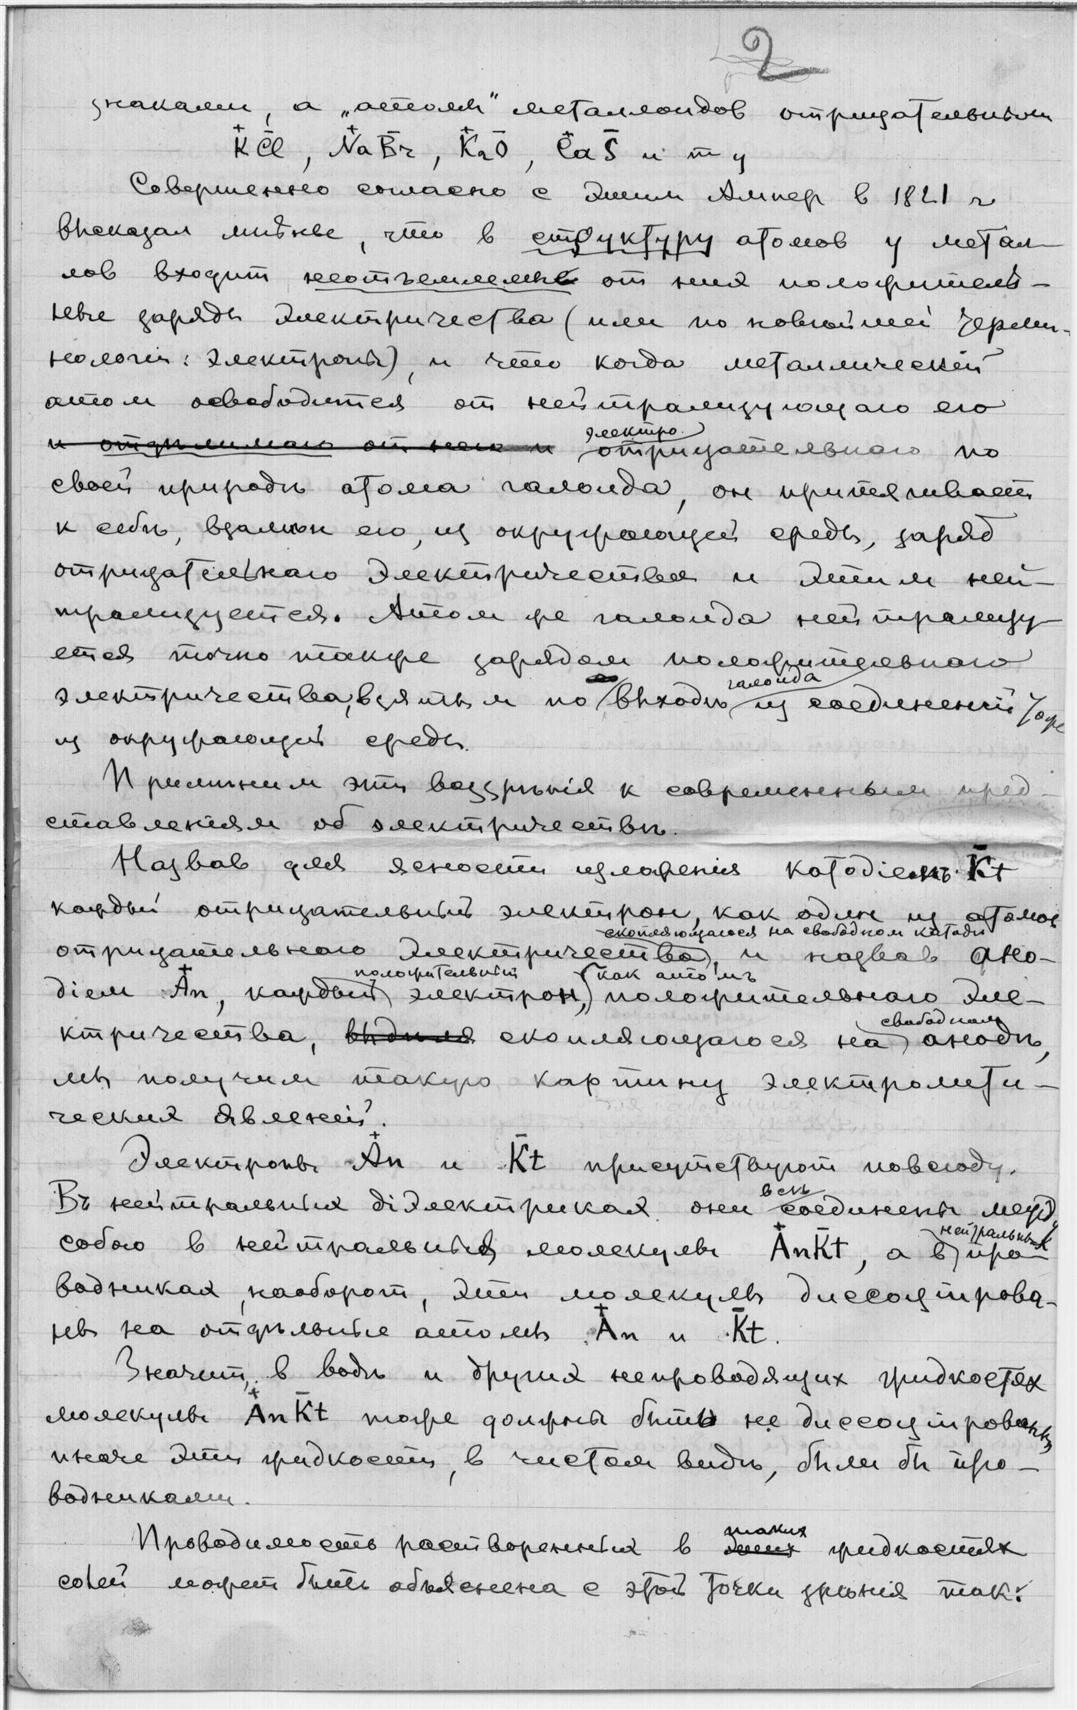 2
знаками, а „атомы" металлоидов отрицательными
K̟⁺ Cl⁻, Na⁺ Br⁻, K₂⁺ O⁻, Ca⁺ S⁻ и т д
Совершенно согласно с этим Ампер в 1821 г
высказал мнѣнье, что в структуру атомов у метал-
лов входит неотъемлемые от них положитель-
ные заряды электричества (или по новѣйшей терми-
нологіи: электроны), и что когда металлическій
атом освободится от нейтрализующаго его
и отдѣлимаго от него и электро отрицательнаго по
своей природѣ атома галоида, он притягивает
к себѣ, взамѣн его, из окружающей среды, заряд
отрицательнаго электричества и этим ней-
трализуется. Атом же галоида нейтрализу-
ется точно также зарядом положительнаго
электричества, взятым по выходѣ галоида из соединений тоже
из окружающей среды.
Примѣним эти воззрѣнія к современным пред-
ставленіям об электричествѣ.
Назвав для ясности изложенія катодіемъ K̄t
каждый отрицательный электрон, как один из атомов
отрицательнаго электричества скопляющагося на свободном катодѣ, и назвав ано-
діем A⁺n, каждый положительный электрон, как атомъ положительнаго эле-
ктричества, скопляющагося на свободном анодѣ,
мы получим такую картину электролити-
ческих явленій.
Электроны A⁺n и K̄t присутствуют повсюду.
Въ нейтральных діэлектриках они всѣ соединены между
собою в нейтральныя молекулы A⁺nK̄t, а в нейтральных про-
водниках, наоборот, эти молекулы диссоцірова-
ны на отдѣльные атомы A⁺n и K̄t.
Значит, в водѣ и других непроводящих жидкостях
молекулы A⁺nK̄t тоже должны быть не диссоціированы
иначе эти жидкости, в чистом видѣ, были бы про-
водниками.
Проводимость растворенных в этих таких жидкостях
солей может быть объяснена с этой точки зрѣнія так: